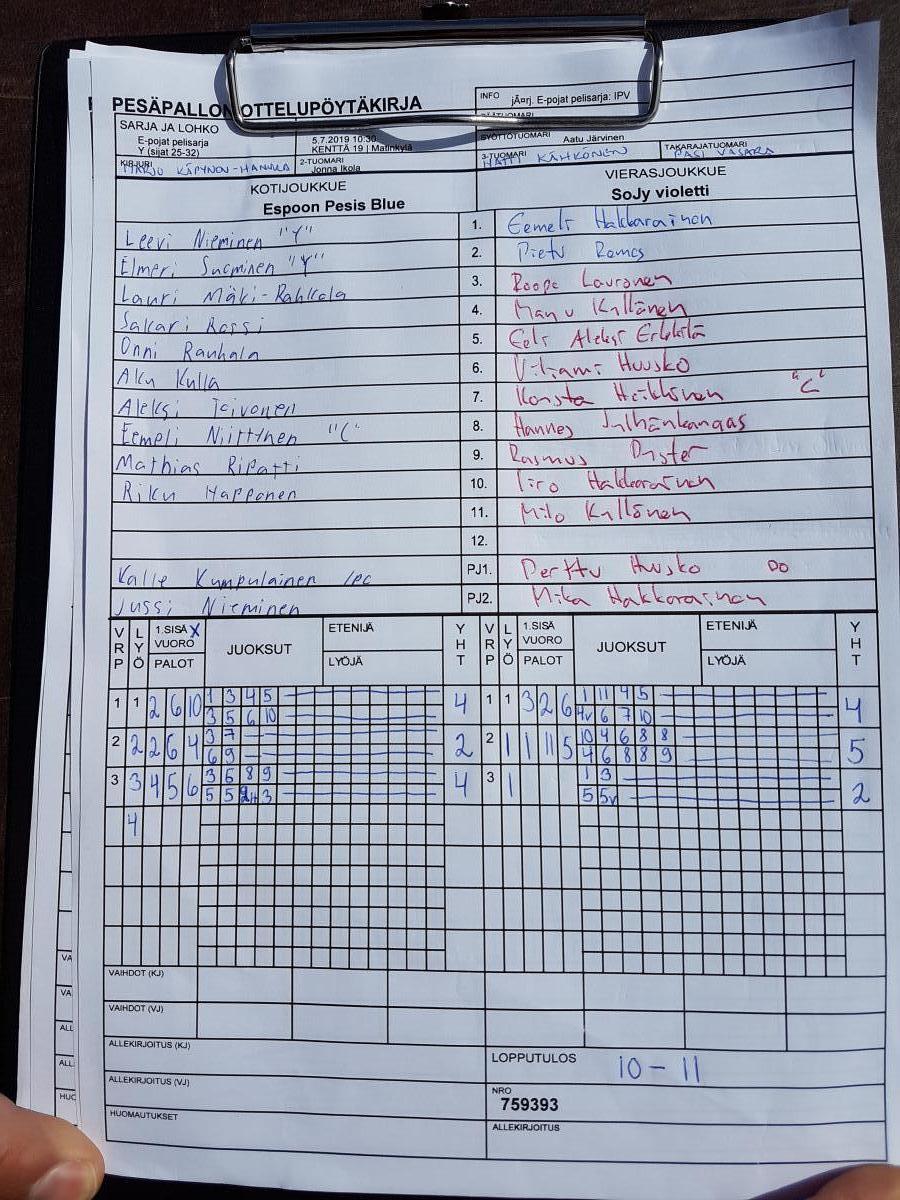 PESÄPALLON OTTELUPÖYTÄKIRJA
INFO jÃ¤rj. E-pojat pelisarja: IPV
SARJA JA LOHKO
E-pojat pelisarja
Y (sijat 25-32)
5.7.2019 10:30
KENTTÄ 19 | Matinkylä
SYÖTTÖTUOMARI Aatu Järvinen
KIRJURI
2-TUOMARI
Jonna Ikola
3-TUOMARI KÄHKÖNEN
TAKARAJATUOMARI PASI VASARA
KOTIJOUKKUE
Espoon Pesis Blue
VIERASJOUKKUE
SoJy violetti
Leevi Nieminen "Y" 1. Eemeli Hakkarainen
Elmeri Suominen "Y" 2. Pietu
Lauri Mäki-Rahkola 3. Roope Lauronen
Sakari Rossi 4. Manu Kyllönen
Onni Rauhala 5. Eeli Aleksi Erkkilä
Aku Kulla 6. Viljami Huusko
Aleksi Toivonen 7. Konsta Heikkinen "C"
Eemeli Niittynen "C" 8. Hannes Julhänkangas
Mathias Ripatti 9. Rasmus
Riku Happonen 10. Iiro Hakkarainen
11. Milo Kyllönen
12.
Kalle Kumpulainen /PC PJ1. Perttu Huusko DO
Jussi Nieminen PJ2. Mika Hakkarainen
VRP LYÖ 1.SISÄ X VUORO PALOT JUOKSUT ETENIJÄ LYÖJÄ YHT VRP LYÖ 1.SISÄ VUORO PALOT JUOKSUT ETENIJÄ LYÖJÄ YHT
1 1 2 6 10 1 3 4 5 4 1 1 3 2 6 1 11 4 5 4
3 5 6 10 4v 6 7 10
2 2 2 6 4 3 7 2 2 1 1 11 5 10 4 6 8 8 5
6 9 4 6 8 8 9
3 3 4 5 6 3 5 8 9 4 3 1 1 3 2
5 5 3 5 5v
4
VAIHDOT (KJ)
VAIHDOT (VJ)
ALLEKIRJOITUS (KJ)
LOPPUTULOS 10 - 11
ALLEKIRJOITUS (VJ)
NRO
759393
HUOMAUTUKSET
ALLEKIRJOITUS
VA
VA
ALL
ALL
HUC